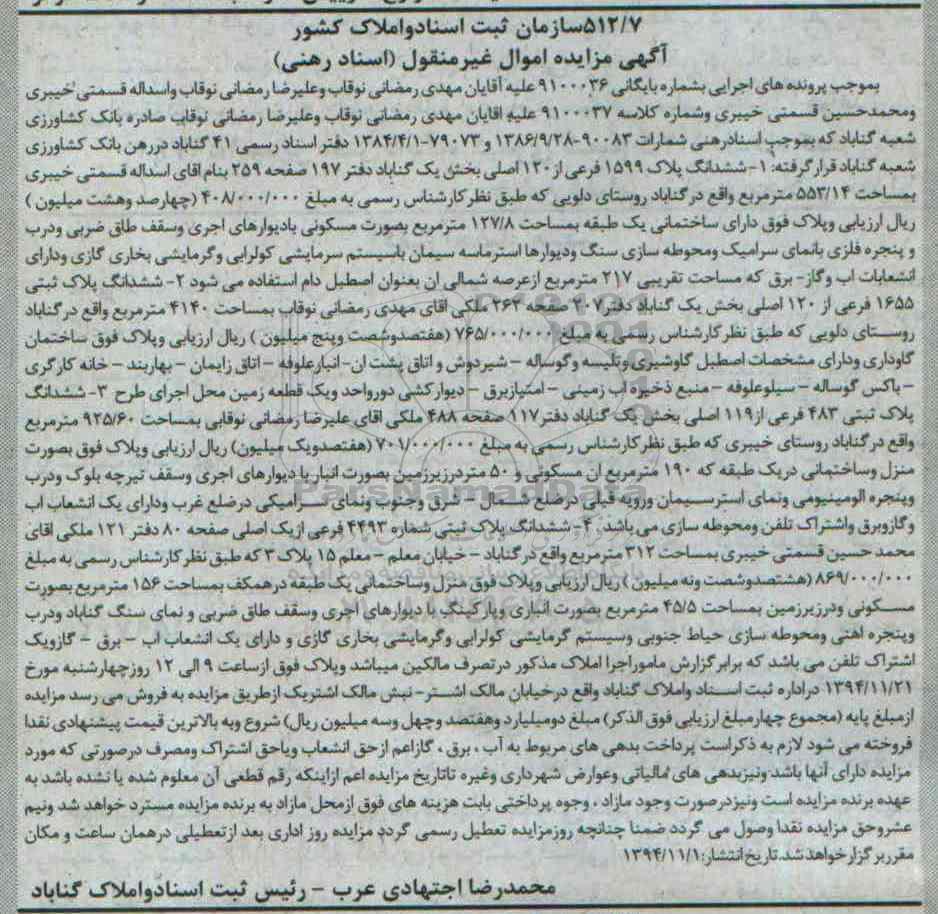 ۵۱۲/۷سازمان ثبت اسنادواملاک کشور
آگهی مزایده اموال غیرمنقول (اسناد رهنی)
بموجب پرونده های اجرایی بشماره بایگانی ۹۱۰۰۰۳۶ علیه آقایان مهدی رمضانی نوقاب وعلیرضا رمضانی نوقاب واسداله قسمتی خیبری
ومحمدحسین قسمتی خیبری وشماره کلاسه ۹۱۰۰۰۳۷ علیه اقایان مهدی رمضانی نوقاب وعلیرضا رمضانی نوقاب صادره بانک کشاورزی
شعبه گناباد که بموجب اسنادرهنی شمارات ۹۰۰۸۳-۱۳۸۶/۹/۲۸ و ۷۹۰۷۳-۱۳۸۴/۴/۱ دفتر اسناد رسمی ۴۱ گناباد دررهن بانک کشاورزی
شعبه گناباد قرارگرفته: ۱- ششدانگ پلاک ۱۵۹۹ فرعی از ۱۲۰ اصلی بخش یک گناباد دفتر ۱۹۷ صفحه ۲۵۹ بنام اقای اسداله قسمتی خیبری
بمساحت ۵۵۳/۱۴ مترمربع واقع درگناباد روستای دلویی که طبق نظرکارشناس رسمی به مبلغ ۴۰۸/۰۰۰/۰۰۰ (چهارصد وهشت میلیون )
ریال ارزیابی وپلاک فوق دارای ساختمانی یک طبقه بمساحت ۱۲۷/۸ مترمربع بصورت مسکونی بادیوارهای اجری وسقف طاق ضربی ودرب
و پنجره فلزی بانمای سرامیک ومحوطه سازی سنگ ودیوارها استرماسه سیمان باسیستم سرمایشی کولرابی وگرمایشی بخاری گازی ودارای
انشعابات اب وگاز- برق که مساحت تقریبی ۲۱۷ مترمربع ازعرصه شمالی ان بعنوان اصطبل دام استفاده می شود ۲- ششدانگ پلاک ثبتی
۱۶۵۵ فرعی از ۱۲۰ اصلی بخش یک گناباد دفتر۲۰۷ صفحه ۲۶۳ ملکی اقای مهدی رمضانی نوقاب بمساحت ۴۱۴۰ مترمربع واقع درگناباد
روستای دلویی که طبق نظرکارشناس رسمی به مبلغ ۷۶۵/۰۰۰/۰۰۰ (هفتصدوشصت وپنج میلیون ) ریال ارزیابی وپلاک فوق ساختمان
گاوداری ودارای مشخصات اصطبل گاوشیری وتلیسه وگوساله – شیردوش و اتاق پشت ان- انبارعلوفه – اتاق زایمان – بهاربند – خانه کارگری
– باکس گوساله – سیلوعلوفه – منبع ذخیره اب زمینی – امتیازبرق – دیوارکشی دورواحد ویک قطعه زمین محل اجرای طرح ۳- ششدانگ
پلاک ثبتی ۴۸۳ فرعی از۱۱۹ اصلی بخش یک گناباد دفتر۱۱۷ صفحه ۴۸۸ ملکی اقای علیرضا رمضانی نوقابی بمساحت ۹۲۵/۶۰ مترمربع
واقع درگناباد روستای خیبری که طبق نظرکارشناس رسمی به مبلغ ۷۰۱/۰۰۰/۰۰۰ (هفتصدویک میلیون) ریال ارزیابی وپلاک فوق بصورت
منزل وساختمانی دریک طبقه که ۱۹۰ مترمربع ان مسکونی و ۵۰ متردرزیرزمین بصورت انباربا دیوارهای اجری وسقف تیرچه بلوک ودرب
وپنجره الومینیومی ونمای استرسیمان ورویه فیلی درضلع شمال – شرق وجنوب ونمای سرامیکی درضلع غرب ودارای یک انشعاب اب
وگازوبرق واشتراک تلفن ومحوطه سازی می باشد. ۴- ششدانگ پلاک ثبتی شماره ۴۴۹۳ فرعی ازیک اصلی صفحه ۸۰ دفتر ۱۲۱ ملکی اقای
محمد حسین قسمتی خیبری بمساحت ۳۱۲ مترمربع واقع درگناباد – خیابان معلم – معلم ۱۵ پلاک ۳ که طبق نظرکارشناس رسمی به مبلغ
۸۶۹/۰۰۰/۰۰۰ (هشتصدوشصت ونه میلیون ) ریال ارزیابی وپلاک فوق منزل وساختمانی یک طبقه درهمکف بمساحت ۱۵۶ مترمربع بصورت
مسکونی ودرزیرزمین بمساحت ۴۵/۵ مترمربع بصورت انباری وپارکینگ با دیوارهای اجری وسقف طاق ضربی و نمای سنگ گناباد ودرب
وپنجره اهنی ومحوطه سازی حیاط جنوبی وسیستم گرمایشی کولرابی وگرمایشی بخاری گازی و دارای یک انشعاب اب – برق – گازویک
اشتراک تلفن می باشد که برابرگزارش ماموراجرا املاک مذکور درتصرف مالکین میباشد وپلاک فوق ازساعت ۹ الی ۱۲ روزچهارشنبه مورخ
۱۳۹۴/۱۱/۲۱ دراداره ثبت اسناد واملاک گناباد واقع درخیابان مالک اشتر- نبش مالک اشتریک ازطریق مزایده به فروش می رسد مزایده
ازمبلغ پایه (مجموع چهارمبلغ ارزیابی فوق الذکر) مبلغ دومیلیارد وهفتصد وچهل وسه میلیون ریال) شروع وبه بالاترین قیمت پیشنهادی نقدا
فروخته می شود لازم به ذکراست پرداخت بدهی های مربوط به آب ، برق ، گازاعم ازحق انشعاب ویاحق اشتراک ومصرف درصورتی که مورد
مزایده دارای آنها باشد-ونیزبدهی های مالیاتی وعوارض شهرداری وغیره تاتاریخ مزایده اعم ازاینکه رقم قطعی آن معلوم شده یا نشده باشد به
عهده برنده مزایده است ونیزدرصورت وجود مازاد ، وجوه پرداختی بابت هزینه های فوق ازمحل مازاد به برنده مزایده مسترد خواهد شد ونیم
عشروحق مزایده نقدا وصول می گردد ضمنا چنانچه روزمزایده تعطیل رسمی گردد مزایده روز اداری بعد ازتعطیلی درهمان ساعت و مکان
مقرربرگزارخواهدشد.تاریخ انتشار:۱۳۹۴/۱۱/۱
محمدرضا اجتهادی عرب – رئیس ثبت اسنادواملاک گناباد
ParsNamadData